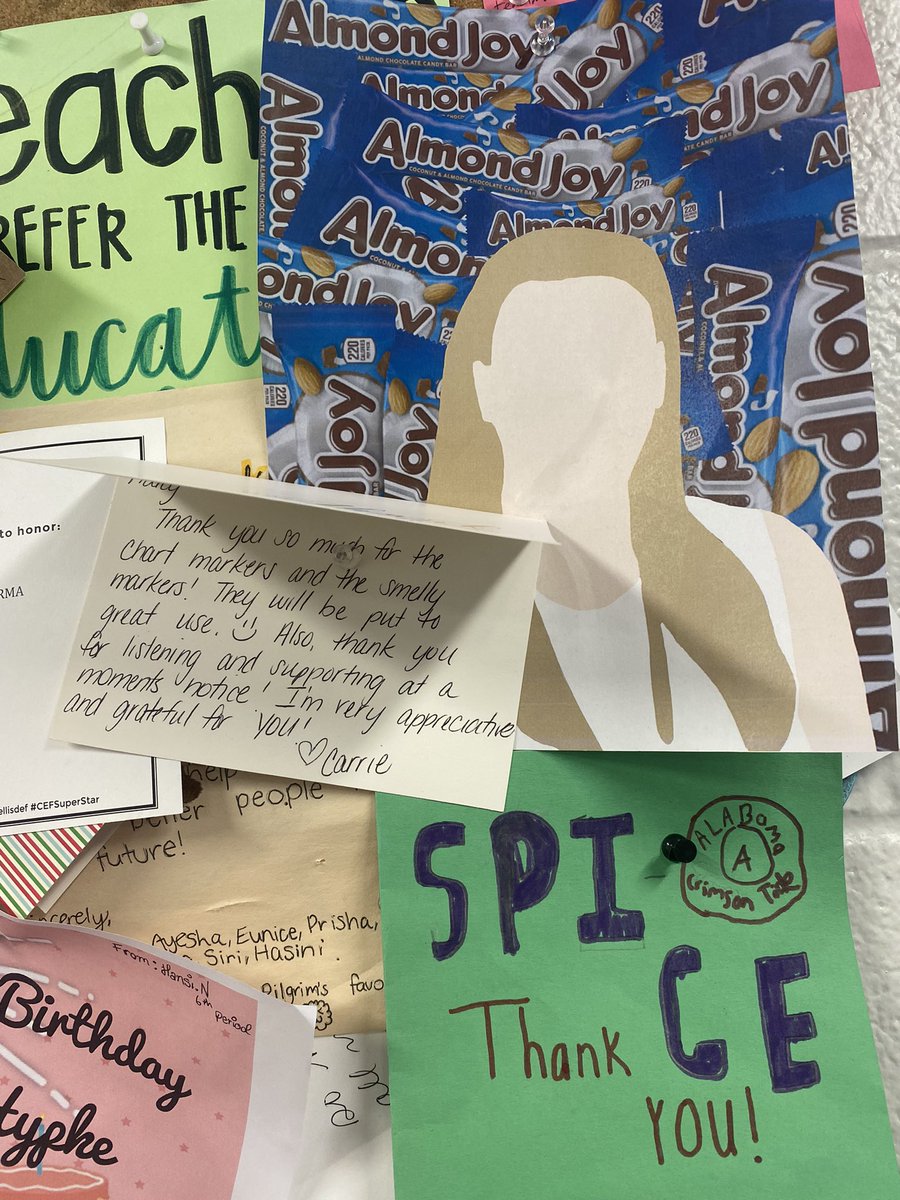 each
REFER THE
ducat
Almond Joy
ALMOND CHOCOLATE CANDY BAR
Almond
Joy
Almond Joy
Almond Joy
COCONUT & ALMOND CHOCOLATE CANDY BAR
220
Almond Joy
Almond
Almond Joy
Almond Joy
220
CALORIES
Joy
Joy
Almond
220
to honor:
RMA
ellisdef #CEFSuperStar
Thank you so much for the
chart markers and the smelly
markers! They will be put to
great use. Also, thank you
for listening and supporting at a
moments notice! I'm very appreciative
and grateful for you!
♡ Carrie
help
better people
future!
Sincerely,
Ayesha, Eunice, Prisha,
Siri, Hasini
Pilgrim's favo
From: Hansi.N
6th
Period
Birthday
typke
SPICE
ALABama
A
Crimson Tide
Thank
YOU!